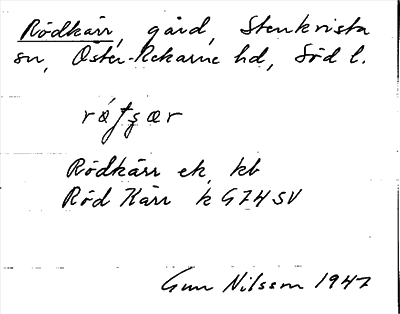 Rödkärr, gård, Stenkvista
sn, Öster-Rekarne hd, Söd l.
Rödkärr ek, kb
Röd Kärr k G74 SV
Gun Nilsson 1947